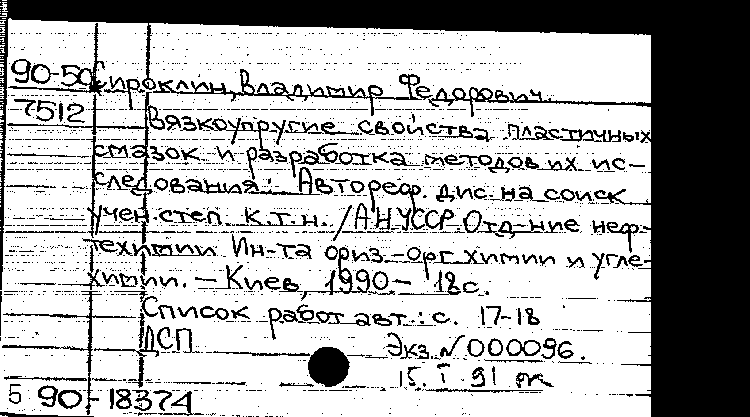 90-50 Сироклин, Владимир Федорович.
7512 Вязкоупругие свойства пластичных
смазок и разработка методов их ис-
следования: Автореф. дис. на соиск.
учен. степ. к.т.н. / АН УССР. Отд-ние неф-
техимии Ин-та физ.-орг. химии и угле-
химии. — Киев, 1990. — 18с.
Список работ авт.: с. 17-18
ДСП Экз. N 000096.
15. I 91
5 90-18374